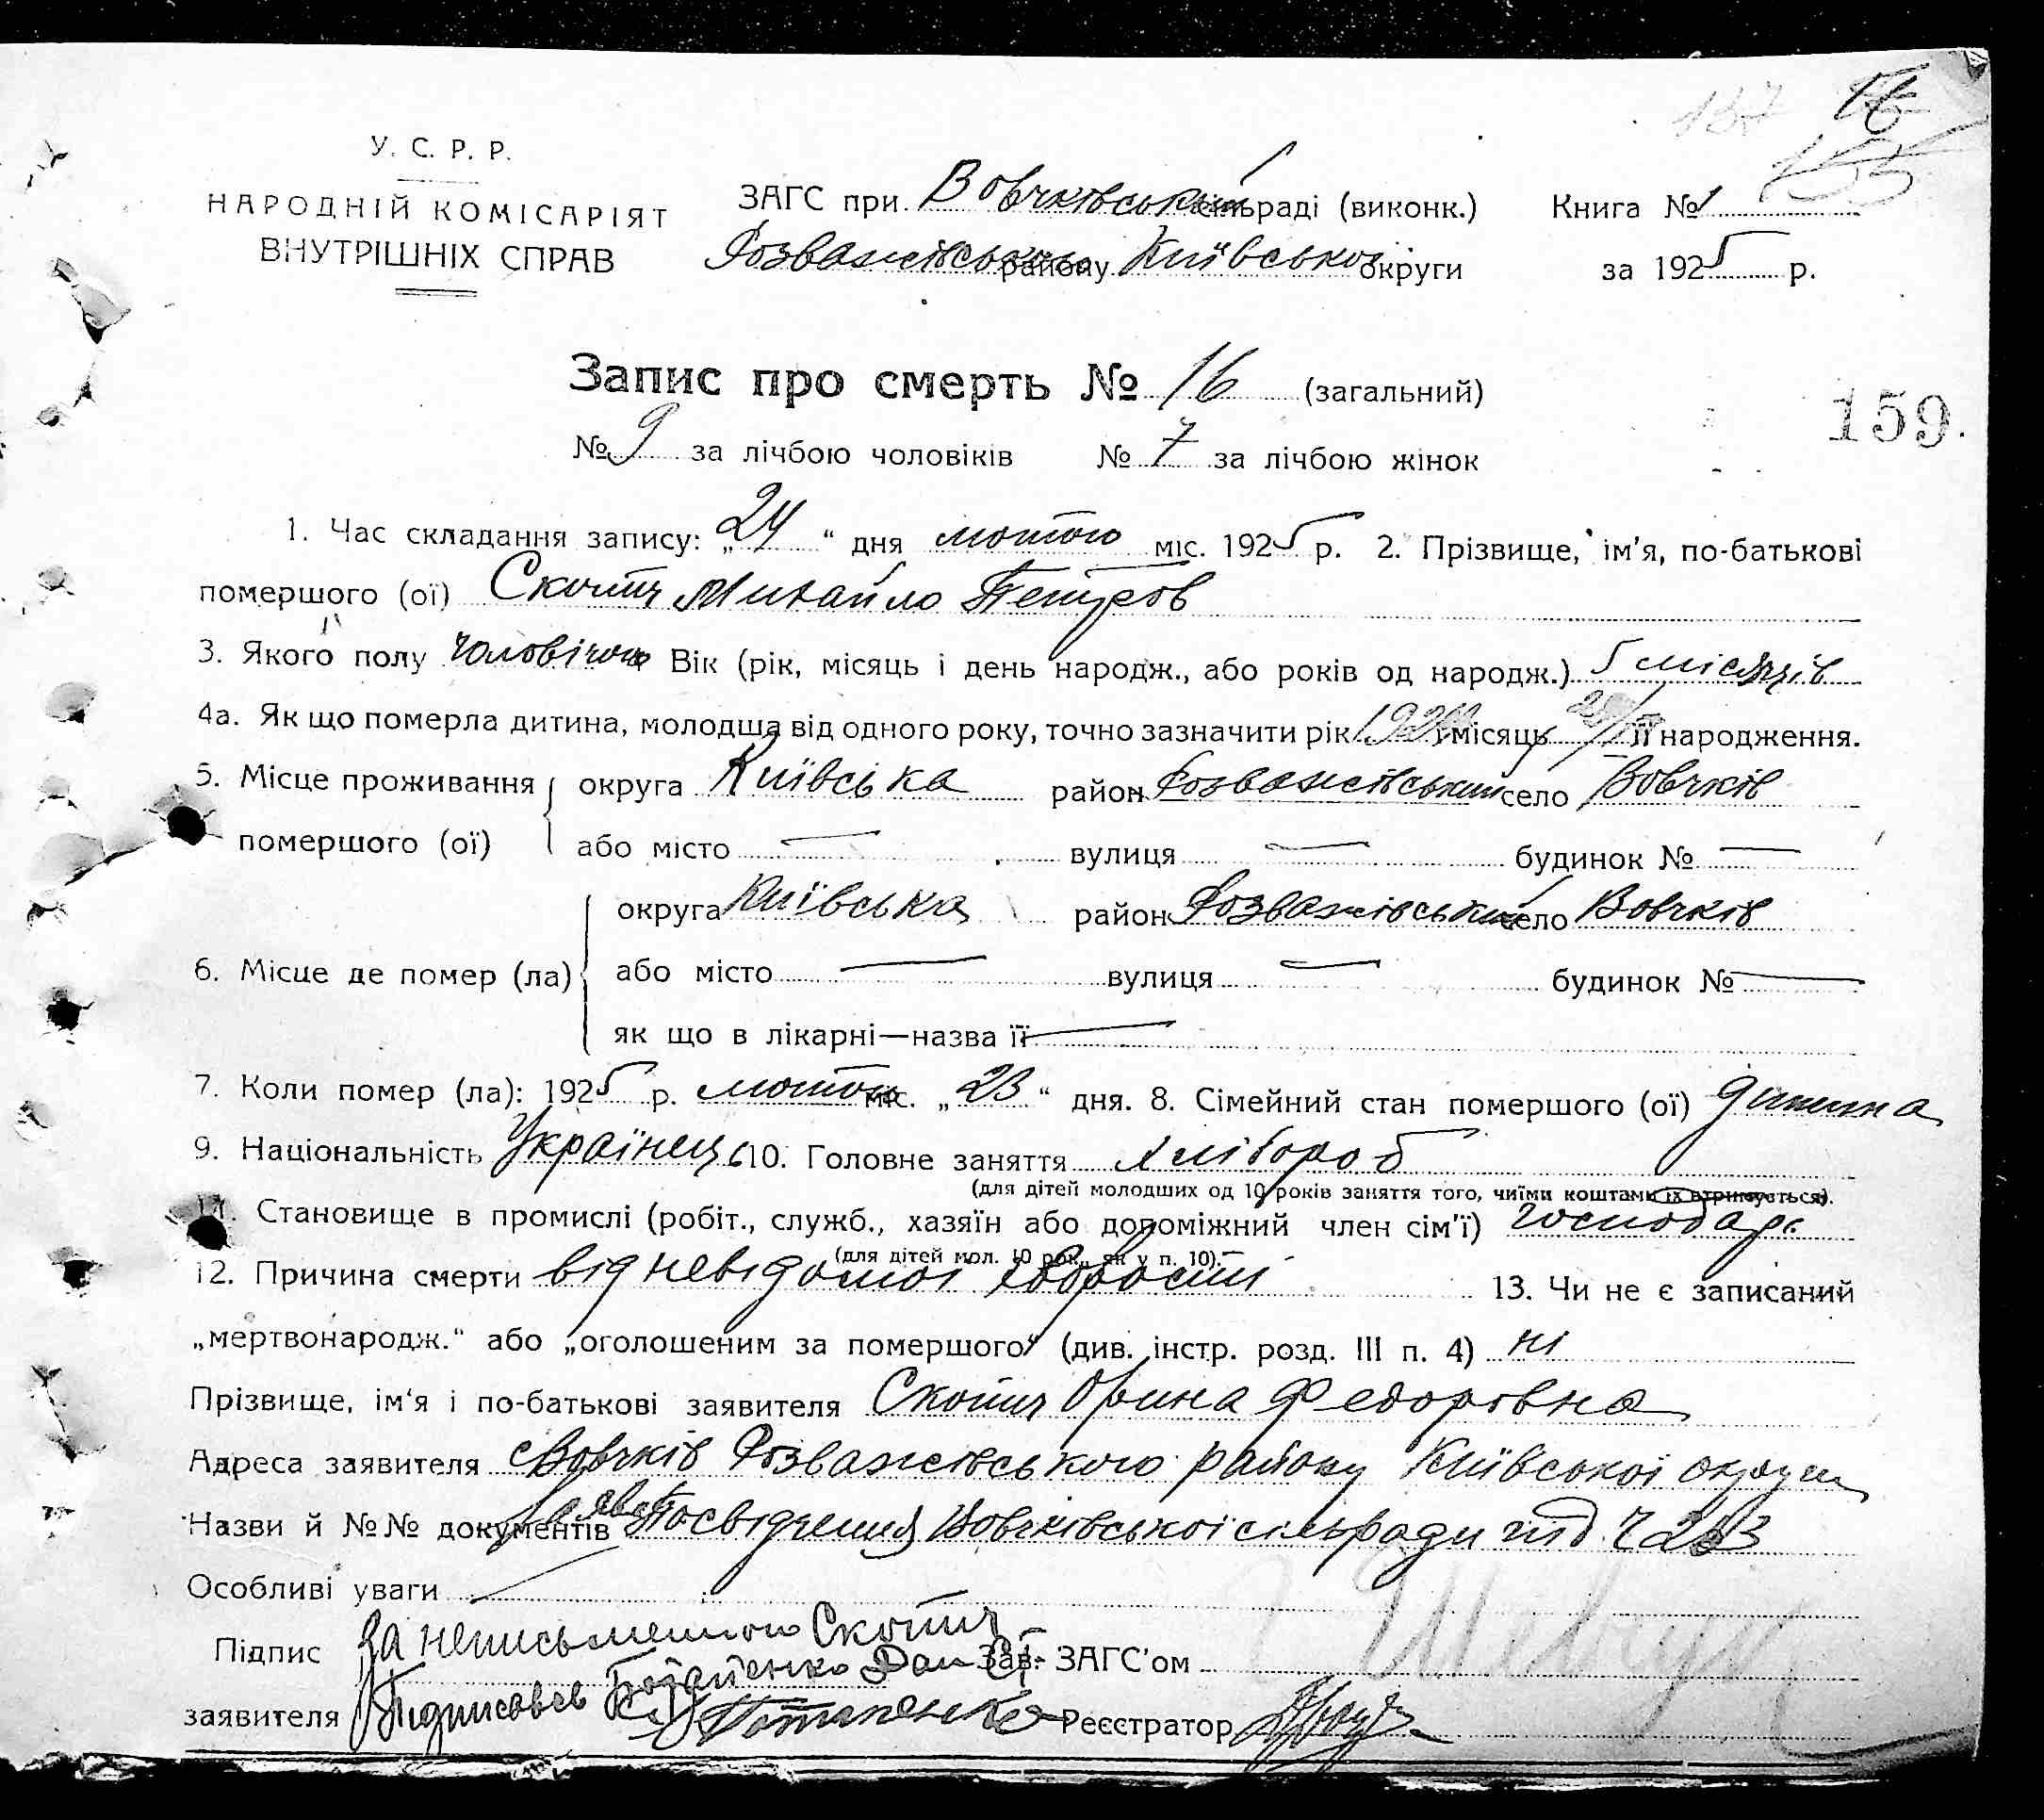 У. С. Р. Р.
НАРОДНІЙ КОМІСАРІЯТ
ВНУТРІШНІХ СПРАВ
ЗАГС при Вовчківській сільраді (виконк.)
Розважівського району Київської округи
Книга № 1
за 1925 р.
155
Запис про смерть № 16 (загальний)
159.
№ 9 за лічбою чоловіків № 7 за лічбою жінок
1. Час складання запису: „24“ дня лютого міс. 1925 р. 2. Прізвище, ім’я, по-батькові
помершого (ої) Скотич Михайло Петров
3. Якого полу чоловічого Вік (рік, місяць і день народж., або років од народж.) 5 місяців
4а. Як що померла дитина, молодша від одного року, точно зазначити рік 1924 і місяць її народження.
5. Місце проживання округа Київська район Розважівський село Вовчків
помершого (ої) або місто — вулиця — будинок № —
округа Київська район Розважівський село Вовчків
6. Місце де помер (ла) або місто — вулиця — будинок № —
як що в лікарні—назва її —
7. Коли помер (ла): 1925 р. лютого міс. „23“ дня. 8. Сімейний стан помершого (ої) дитина
9. Національність Українець 10. Головне заняття хлібороб
(для дітей молодших од 10 років заняття того, чиїми коштами їх втримується).
11. Становище в промислі (робіт., служб., хазяїн або допоміжний член сім’ї) господар
(для дітей мол. 10 рок., як у п. 10).
12. Причина смерти від невідомої хворости 13. Чи не є записаний
„мертвонародж.“ або „оголошеним за помершого“ (див. інстр. розд. III п. 4) ні
Прізвище, ім‘я і по-батькові заявителя Скотич Орина Федоровна
Адреса заявителя с Вовчків Розважівського району Київської округи
Назви й №№ документів Посвідчення Вовчківської сільради під Ч 263
Особливі уваги
Підпис За неписьменною Скотич
Зав. ЗАГС’ом
заявителя Підписався Потапенко
Реєстратор